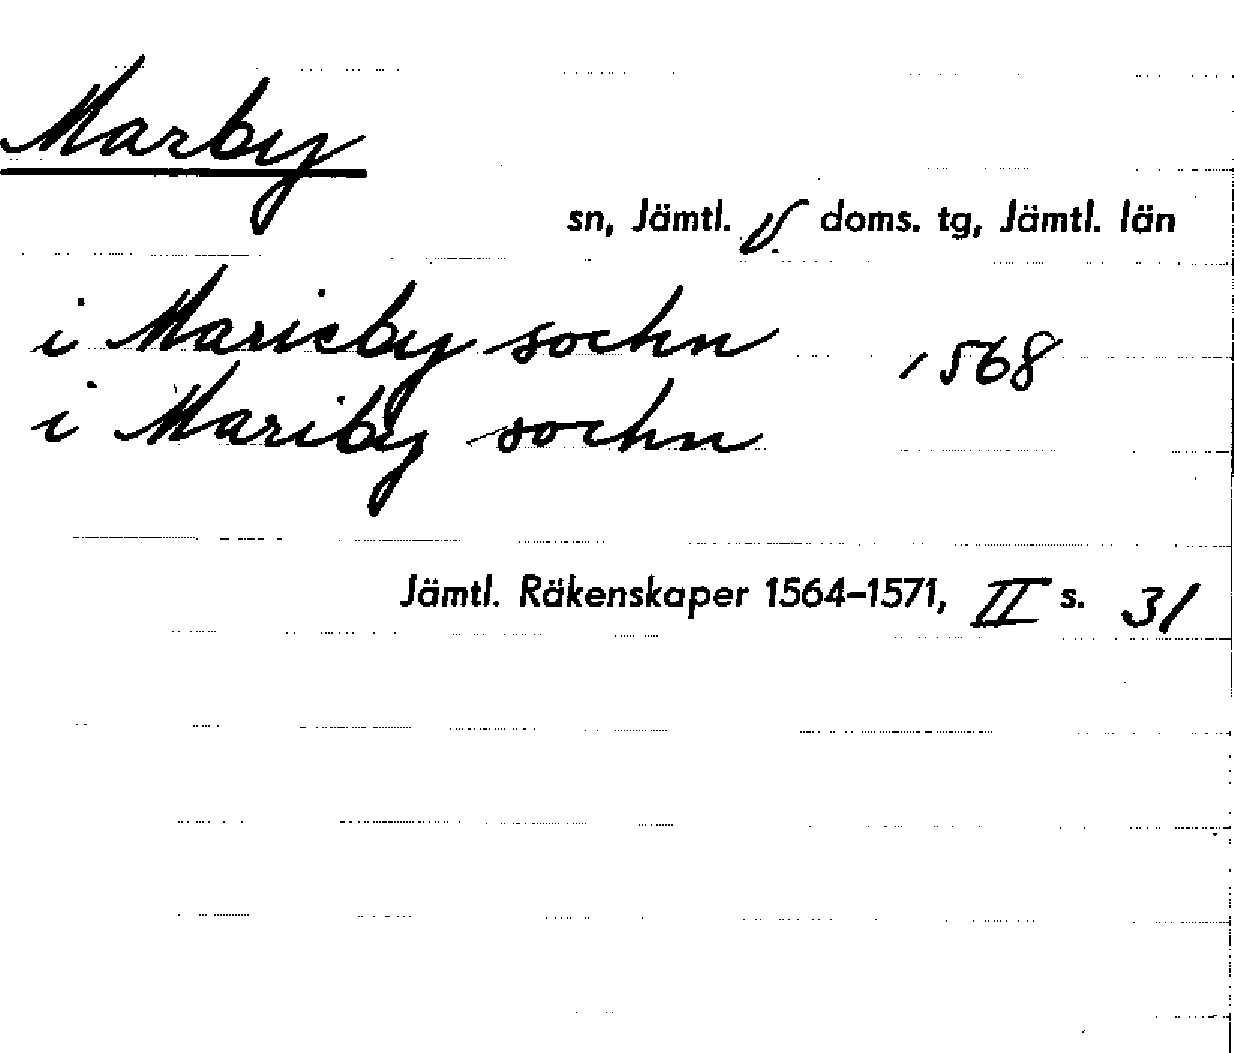 Marby
sn, Jämtl. v. doms. tg, Jämtl. län
i Marieby sochn 1568
i Mariby sochn
Jämtl. Räkenskaper 1564–1571, II s. 31